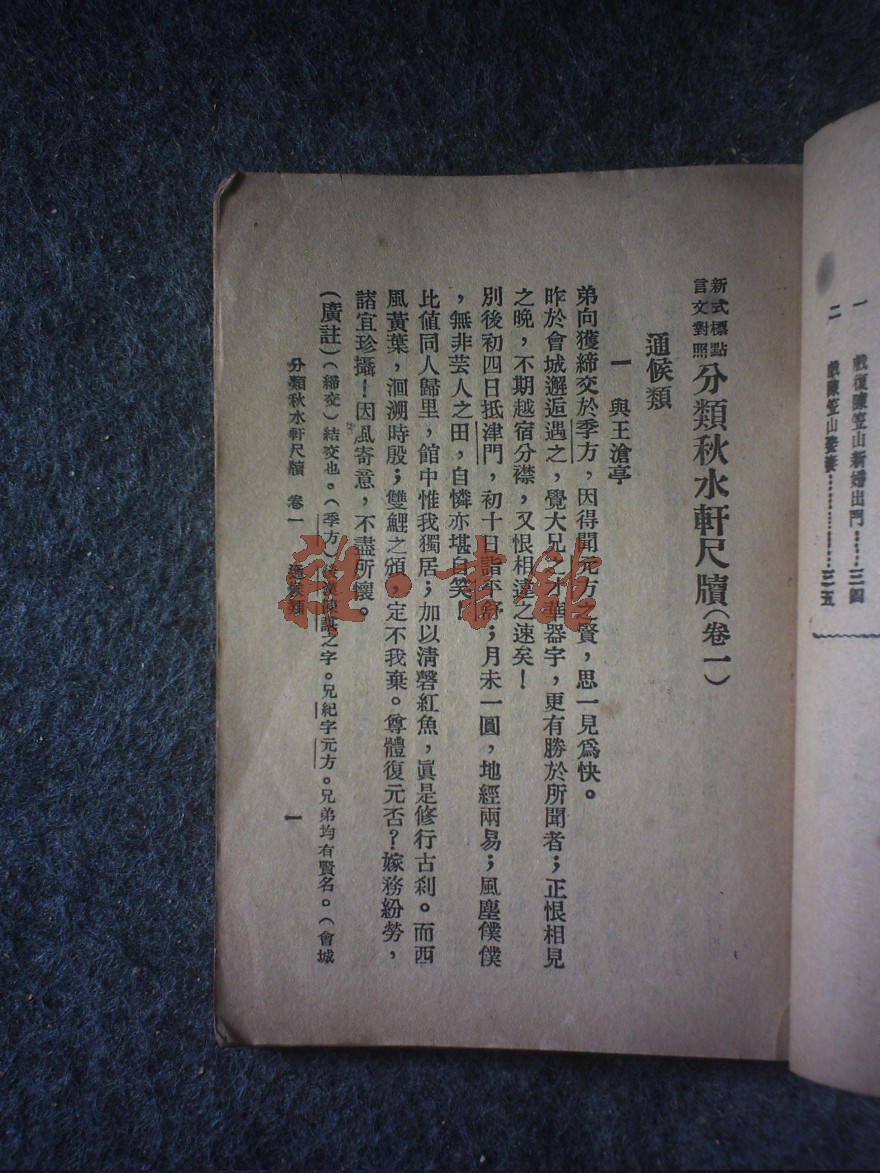 一　戲復陳笠山新婦出門……三四
二　戲陳笠山娶妾…………三五
新式標點
言文對照
分類秋水軒尺牘（卷一）
通候類
一　與王滄亭
弟向獲締交於季方，因得聞元方之賢，思一見爲快。
昨於會城邂逅遇之，覺大兄之才華器宇，更有勝於所聞者；正恨相見
之晚，不期越宿分襟，又恨相違之速矣！
別後初四日抵津門，初十日詣平舒；月未一圓，地經兩易；風塵僕僕
，無非芸人之田，自憐亦堪自笑！
比値同人歸里，館中惟我獨居；加以清磬紅魚，眞是修行古刹。而西
風黃葉，洄溯時殷；雙鯉之頒，定不我棄。尊體復元否？嫁務紛勞，
諸宜珍攝！因風寄意，不盡所懷。
（廣註）（締交）結交也。（季方）後漢陳諶之字。兄紀字元方。兄弟均有賢名。（會城
分類秋水軒尺牘　卷一　通候類
一
雜·書館